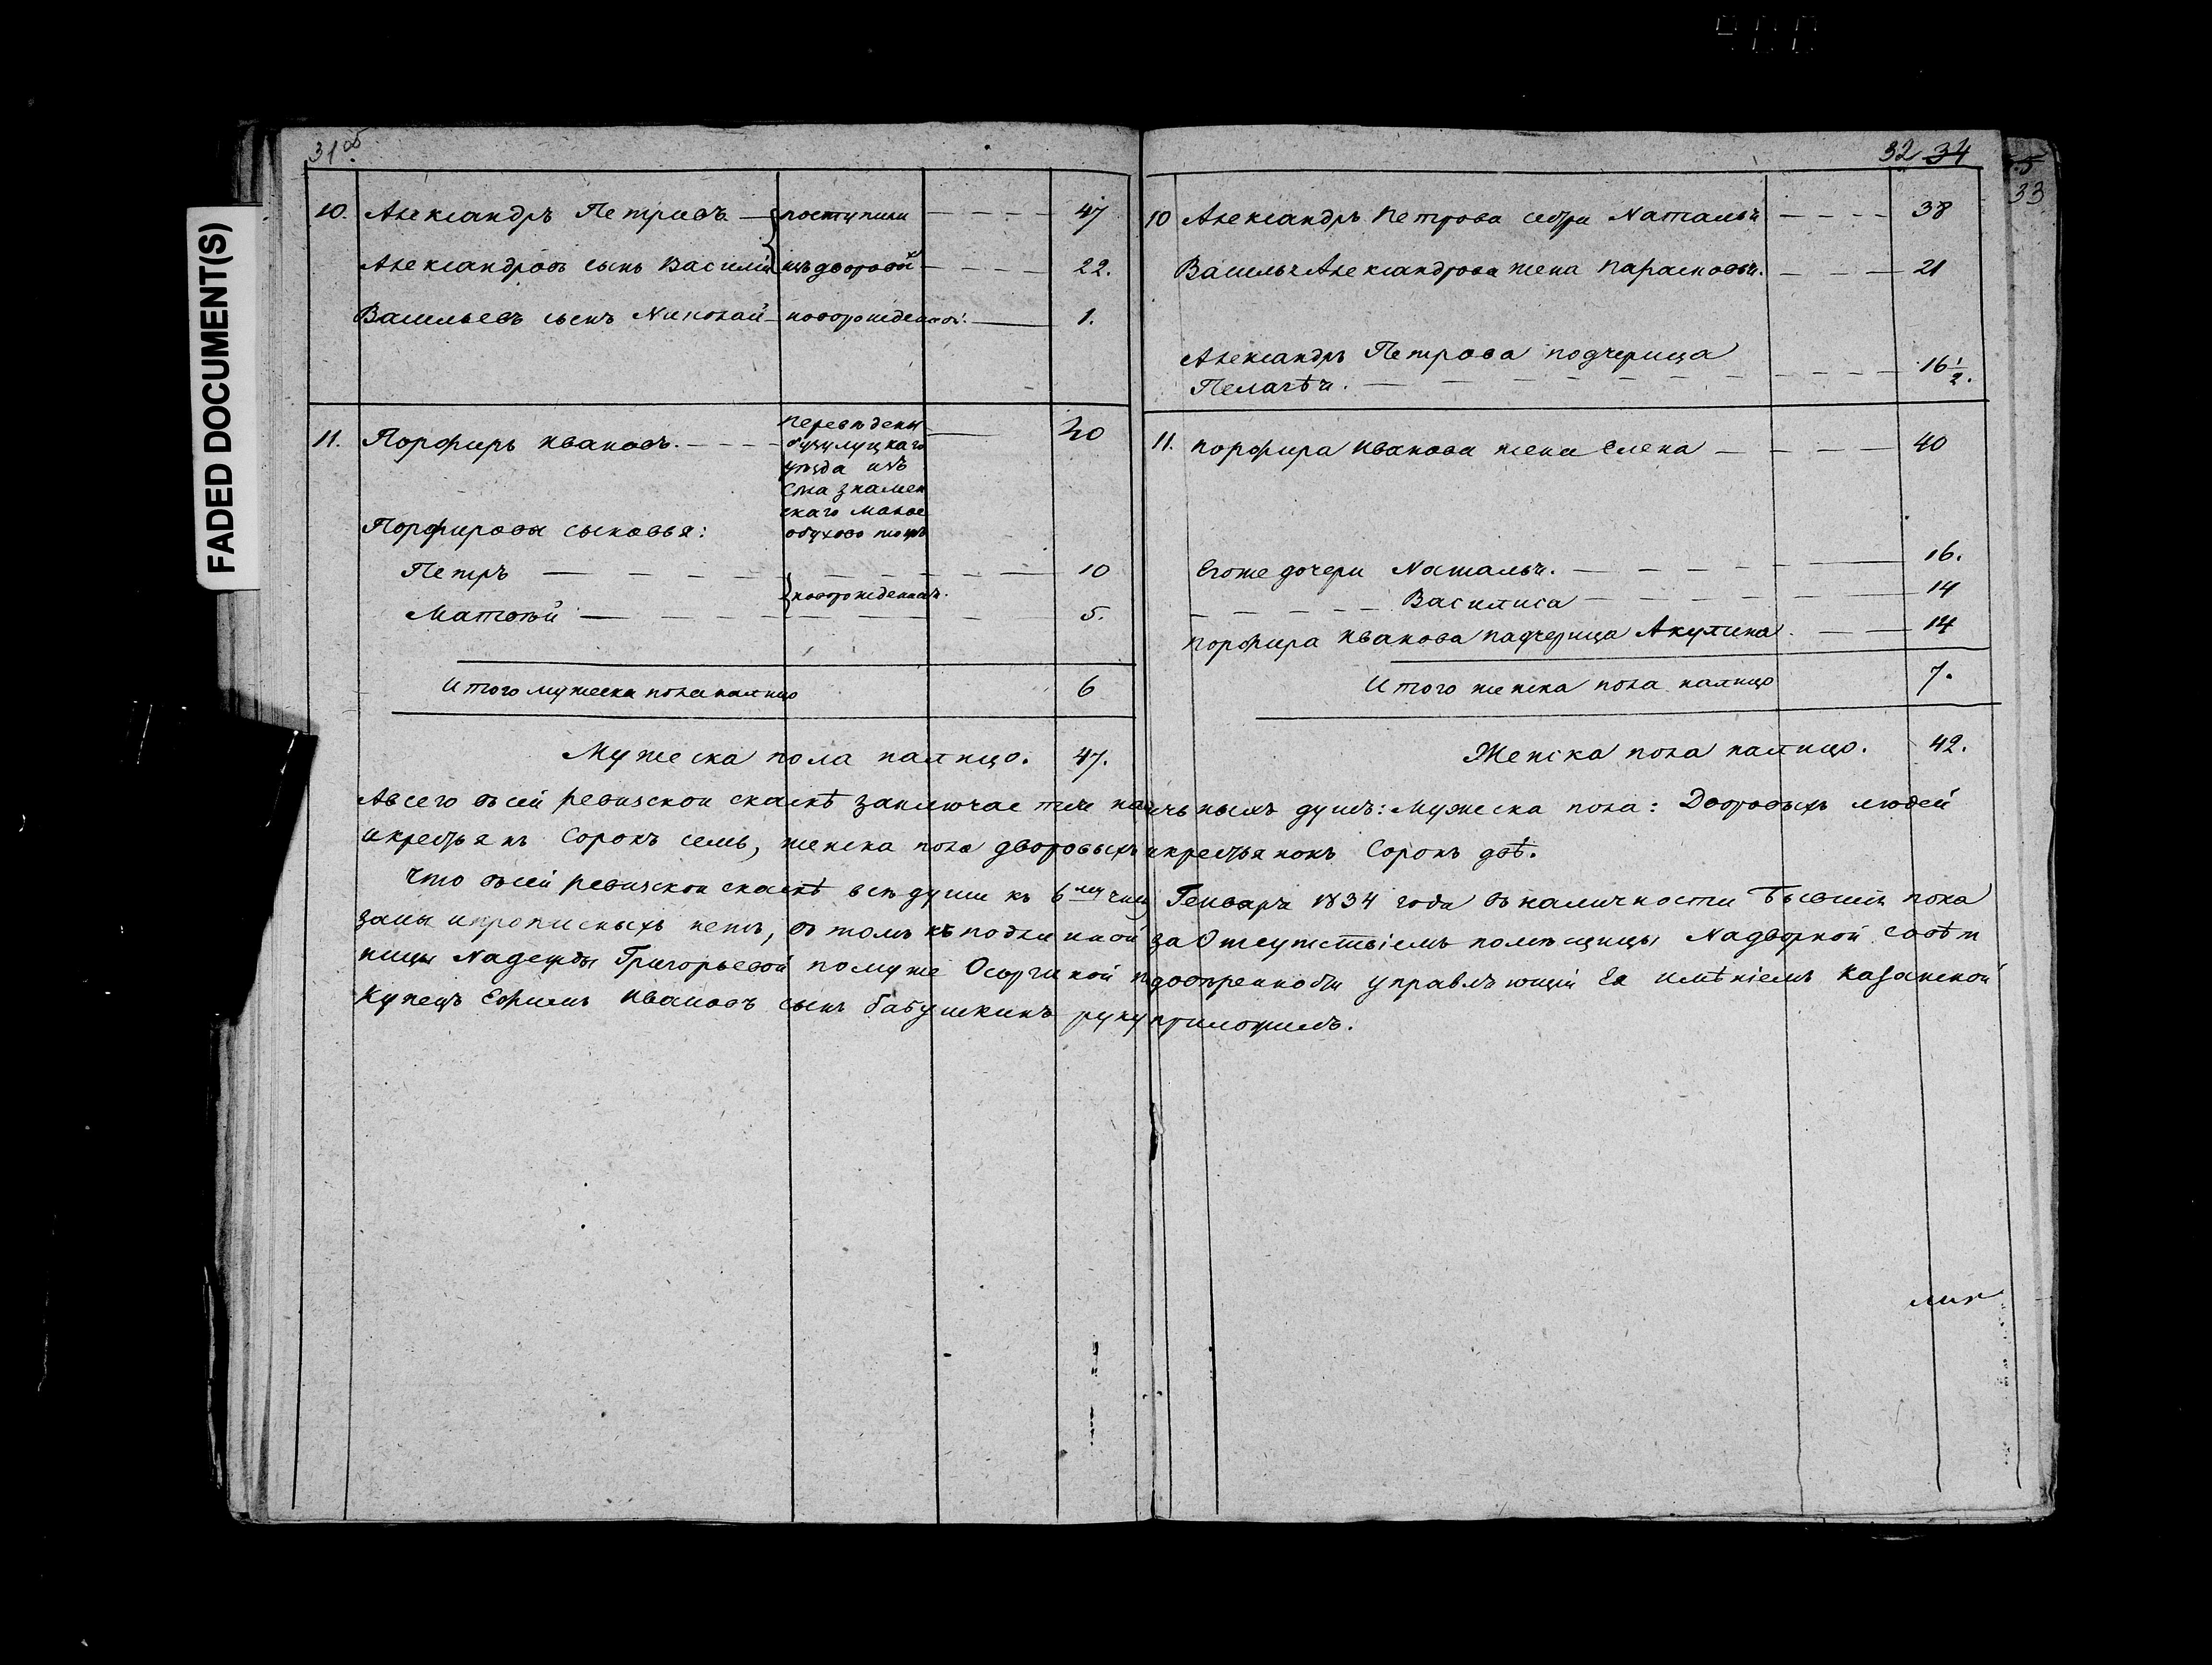 FADED DOCUMENT(S)
31 об
10. Александръ Петровъ — поступили — 47
Александровъ сынъ Василій изъ дворовой — 22.
Васильевъ сынъ Николай — новорожденной. — 1.
11. Порфиръ Ивановъ. — 40
Переведены
бузулуцкаго
уѣзда изъ
Села Знамен
скаго Малое
обухово тожъ
Порфировы сыновья:
Петръ — 10
новорожденныя.
Матвѣй — 5.
Итого мужеска пола налицо 6
Мужеска пола налицо. 47.
32 34
33
10 Александръ Петрова Наталья — 38
Василья Александрова жена Парасковья. — 21
Александръ Петрова подчерица
Пелагѣя. — 16 1/2.
11. Порфира Иванова жена Елена — 40
Егоже дочери Наталья. — 16.
Василиса — 14
Порфира Иванова падчерица Акулина. — 14
Итого женска пола налицо 7.
Женска пола налицо. 42.
Авсего всей ревизской сказкѣ заключается наличныхъ душъ: Мужеска пола: Дворовыхъ людей
икрестьянъ Сорокъ семь, женска пола дворовыхъ икрестьянокъ Сорокъ двѣ.
Что всей ревизской сказкѣ всѣ души къ 6му Генваря 1834 года въ наличности бывшия пока
заны ипрописныхъ нетъ, въ томъ къ подлинной за Отсутствіемъ помѣщицы Надворной Совѣт
ницы Надежды Григорьевой помуже Осоргиной подоверенности управляющій Ея имѣніемъ Казанской
Купецъ Ефимъ Ивановъ сынъ бабушкинъ руку приложилъ.